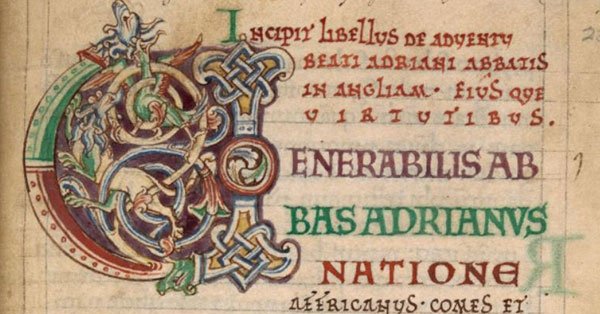 Incipit libellus de adventu
beati adriani abbatis
in angliam · eius que
virtutibus.
ENERABILIS AB
BAS ADRIANVS
NATIONE
AFFRICANUS · COMES ET